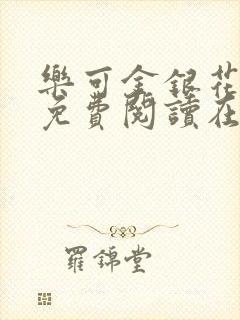 樂可金銀花
免費閱讀在
羅錦堂